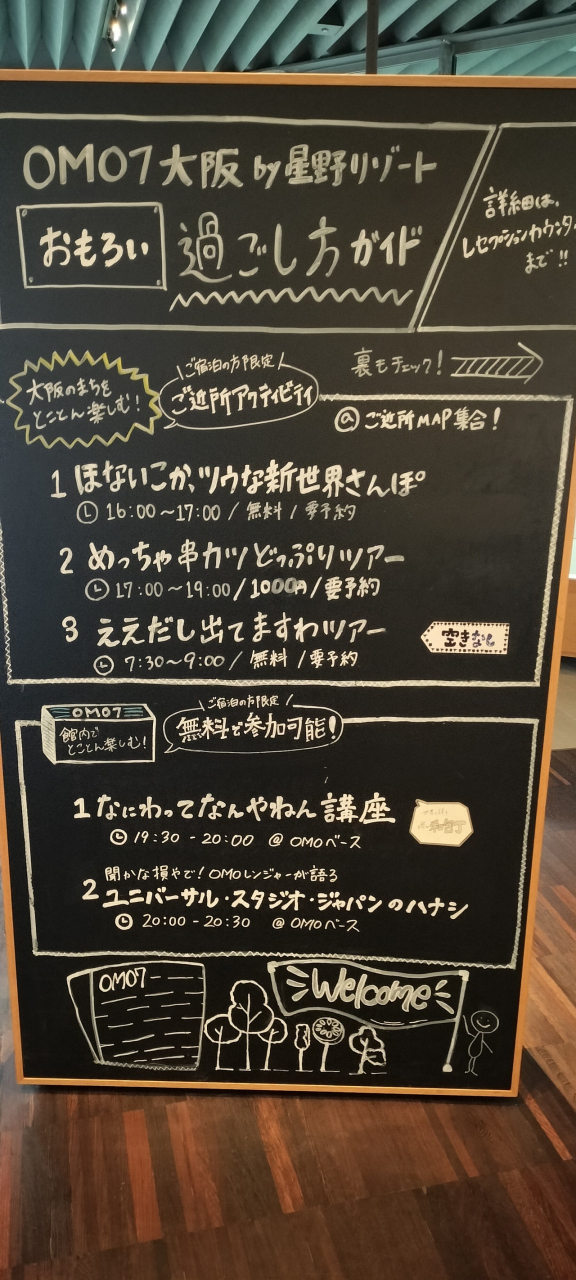 OMO7大阪 by 星野リゾート
おもろい 過ごし方ガイド
詳細は、
レセプションカウンター
まで!!
大阪のまちを
とことん楽しむ!
ご宿泊の方限定
ご近所アクティビティ
裏もチェック!
@ ご近所MAP集合!
1 ほないこか、ツウな新世界さんぽ
16:00〜17:00 / 無料 / 要予約
2 めっちゃ串カツどっぷりツアー
17:00〜19:00 / 1000円 / 要予約
3 ええだし出てますわツアー
空きなし
7:30〜9:00 / 無料 / 要予約
OMO7
館内で
とことん楽しむ!
ご宿泊の方限定
無料で参加可能!
1 なにわってなんやねん講座
19:30 - 20:00 @ OMOベース
聞かな損やで! OMOレンジャーが語る
2 ユニバーサル・スタジオ・ジャパンのハナシ
20:00 - 20:30 @ OMOベース
OMO7
Welcome